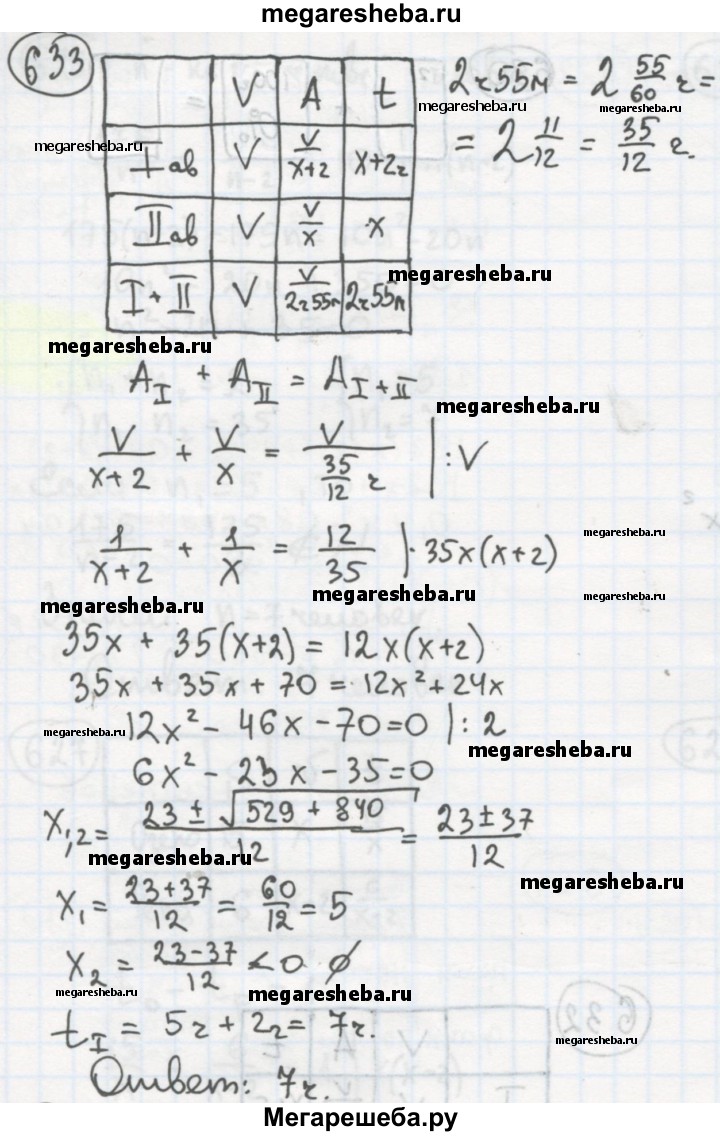 megaresheba.ru
633
V A t
I ав V V/(x+2) x+2ч
II ав V V/x x
I + II V V/2ч55м 2ч55м
2ч55м = 2 55/60 ч =
= 2 11/12 = 35/12 ч.
megaresheba.ru
megaresheba.ru
megaresheba.ru
megaresheba.ru
megaresheba.ru
A_I + A_II = A_I+II
megaresheba.ru
V/(x+2) + V/x = V/(35/12 ч) | :V
megaresheba.ru
1/(x+2) + 1/x = 12/35 | · 35x(x+2)
megaresheba.ru
megaresheba.ru
megaresheba.ru
35x + 35(x+2) = 12x(x+2)
35x + 35x + 70 = 12x² + 24x
12x² - 46x - 70 = 0 | : 2
megaresheba.ru
megaresheba.ru
6x² - 23x - 35 = 0
x₁,₂ = (23 ± √(529 + 840))/12 = (23 ± 37)/12
megaresheba.ru
megaresheba.ru
x₁ = (23+37)/12 = 60/12 = 5
x₂ = (23-37)/12 < 0 ∅
megaresheba.ru
megaresheba.ru
t_I = 5ч + 2ч = 7ч.
megaresheba.ru
632
627
Ответ: 7ч.
Мегарешеба.ру